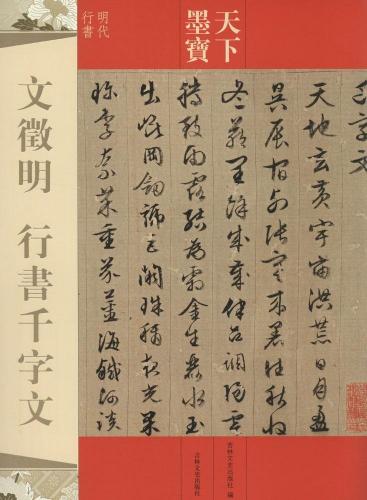 天下
墨寶
明代
行書
文徵明 行書千字文
千字文
天地玄黃宇宙洪荒日月盈
昃辰宿列張寒来暑往秋收
冬藏閏餘成歲律呂調陽雲
騰致雨露結為霜金生麗水玉
出崑岡劒號巨闕珠稱夜光果
珍李柰菜重芥薑海鹹河淡
吉林文史出版社 編
吉林文史出版社